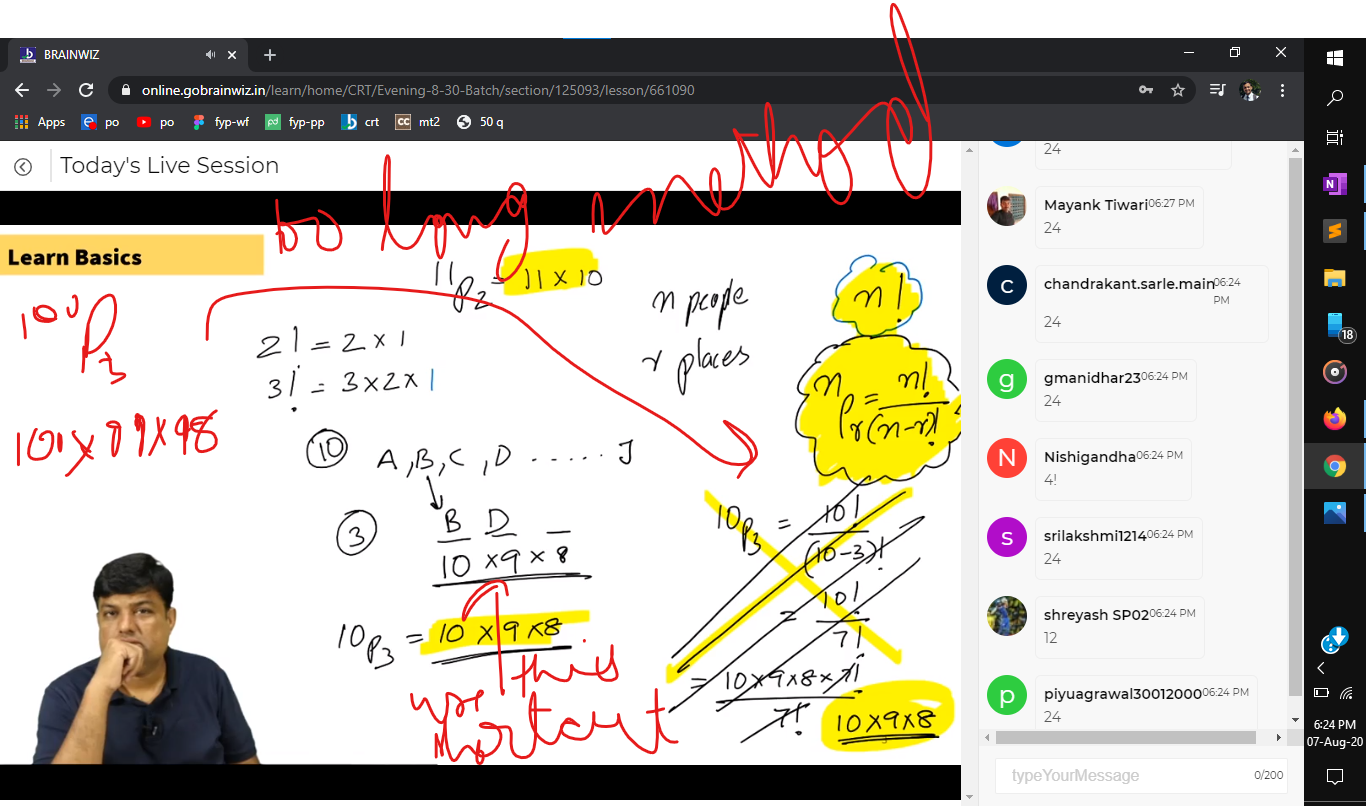 BRAINWIZ
online.gobrainwiz.in/learn/home/CRT/Evening-8-30-Batch/section/125093/lesson/661090
Apps po po fyp-wf fyp-pp crt mt2 50 q
Today's Live Session
too long method
Learn Basics
11P2 = 11 × 10
100P3
2! = 2 × 1
3! = 3 × 2 × 1
100 × 99 × 98
n people
r places
n!
nPr = n! / (n-r)!
10
A, B, C, D ...... J
3
B D _
10 × 9 × 8
10P3 = 10 × 9 × 8
use this
shortcut
10P3 = 10! / (10-3)!
= 10! / 7!
= 10×9×8×7! / 7!
10×9×8
24
Mayank Tiwari 06:27 PM
24
c
chandrakant.sarle.main 06:24 PM
24
g
gmanidhar23 06:24 PM
24
N
Nishigandha 06:24 PM
4!
s
srilakshmi1214 06:24 PM
24
shreyash SP02 06:24 PM
12
p
piyuagrawal30012000 06:24 PM
24
typeYourMessage 0/200
18
6:24 PM
07-Aug-20